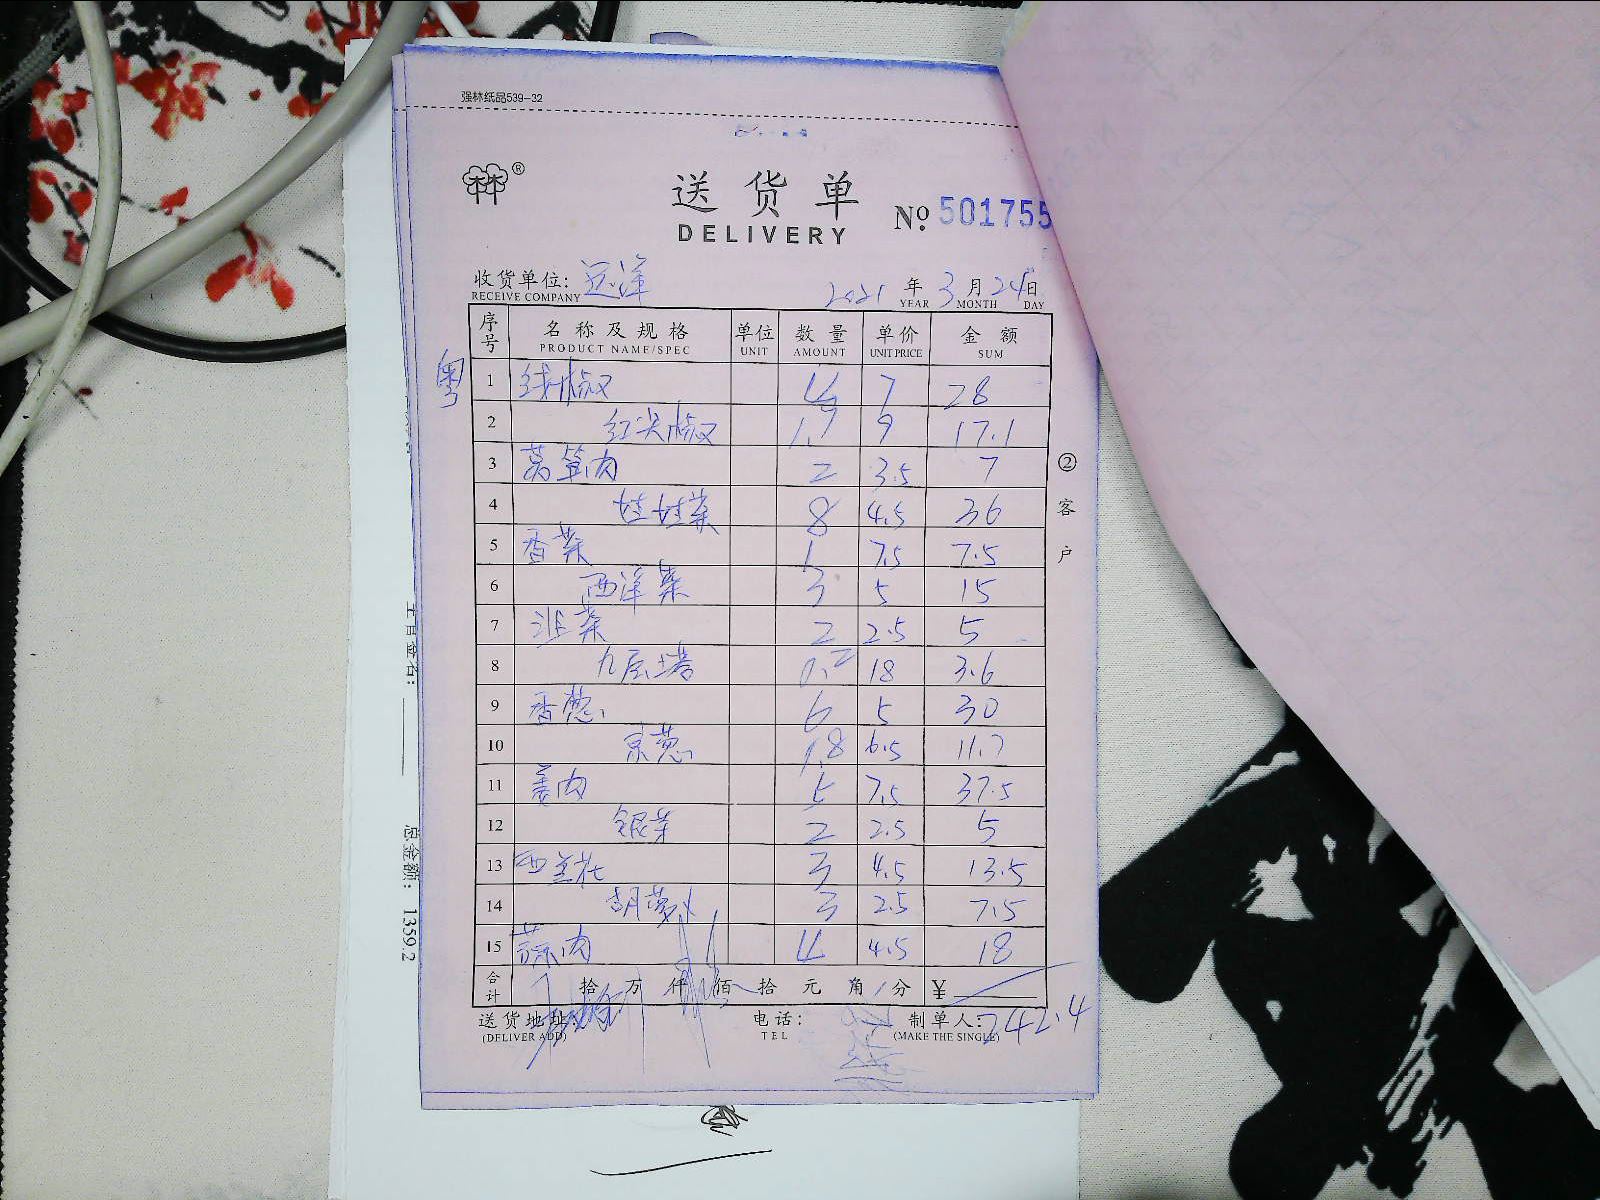 强林纸品539-32
林林®
送货单
DELIVERY
No. 501755
收货单位: 远洋 2021 年 3 月 24 日
RECEIVE COMPANY YEAR MONTH DAY
序号 名称及规格 单位 数量 单价 金额
PRODUCT NAME/SPEC UNIT AMOUNT UNIT PRICE SUM
粤
1 线椒 4 7 28
2 红尖椒 1.9 9 17.1
3 莴笋肉 2 3.5 7
4 娃娃菜 8 4.5 36
5 香菜 1 7.5 7.5
6 西洋菜 3 5 15
7 韭菜 2 2.5 5
8 九层塔 0.2 18 3.6
9 香葱 6 5 30
10 京葱 1.8 6.5 11.7
11 姜肉 5 7.5 37.5
12 银芽 2 2.5 5
13 西兰花 3 4.5 13.5
14 胡萝卜 3 2.5 7.5
15 蒜肉 4 4.5 18
合计 拾 万 仟 佰 拾 元 角 分 ¥
242.4
送货地址: 电话: 制单人:
(DELIVER ADD) TEL (MAKE THE SINGLE)
②客户
总金额: 1359.2